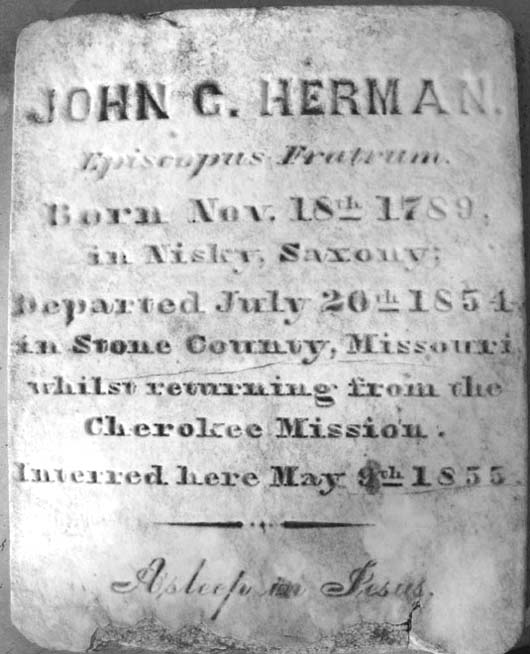 JOHN G. HERMAN.
Episcopus Fratrum.
Born Nov. 18th 1789,
in Nisky, Saxony;
Departed July 20th 1854
in Stone County, Missouri
whilst returning from the
Cherokee Mission.
Interred here May 9th 1855.
Asleep in Jesus.